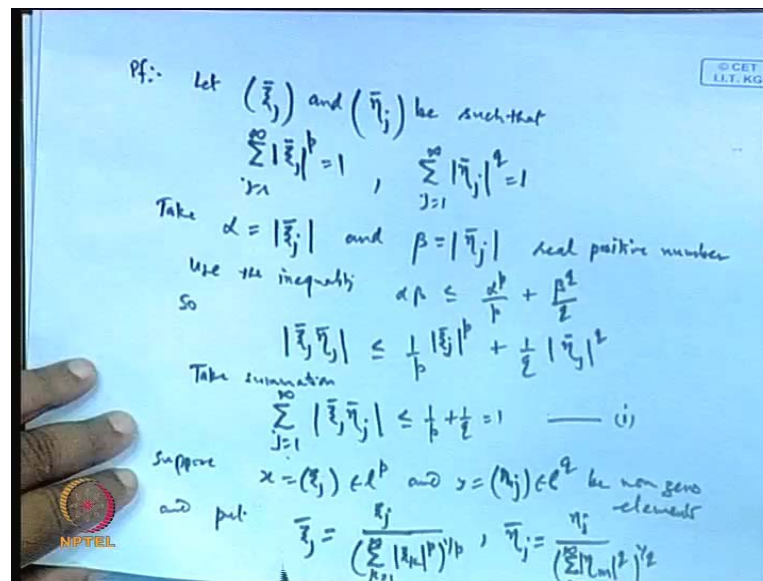 © CET
I.I.T. KG
Pf:- Let (ξ̄_j) and (η̄_j) be such that
∑_{j=1}^{∞} |ξ̄_j|^p = 1 , ∑_{j=1}^{∞} |η̄_j|^q = 1
Take α = |ξ̄_j| and β = |η̄_j| real positive number
Use the inequality αβ ≤ α^p/p + β^q/q
So
|ξ̄_j η̄_j| ≤ 1/p |ξ̄_j|^p + 1/q |η̄_j|^q
Take summation
∑_{j=1}^{∞} |ξ̄_j η̄_j| ≤ 1/p + 1/q = 1 —— (i)
Suppose x = (ξ_j) ∈ l^p and y = (η_j) ∈ l^q be non zero elements
and put ξ̄_j = ξ_j / (∑_{k=1}^{∞} |ξ_k|^p)^{1/p} , η̄_j = η_j / (∑ |η_m|^q)^{1/q}
NPTEL